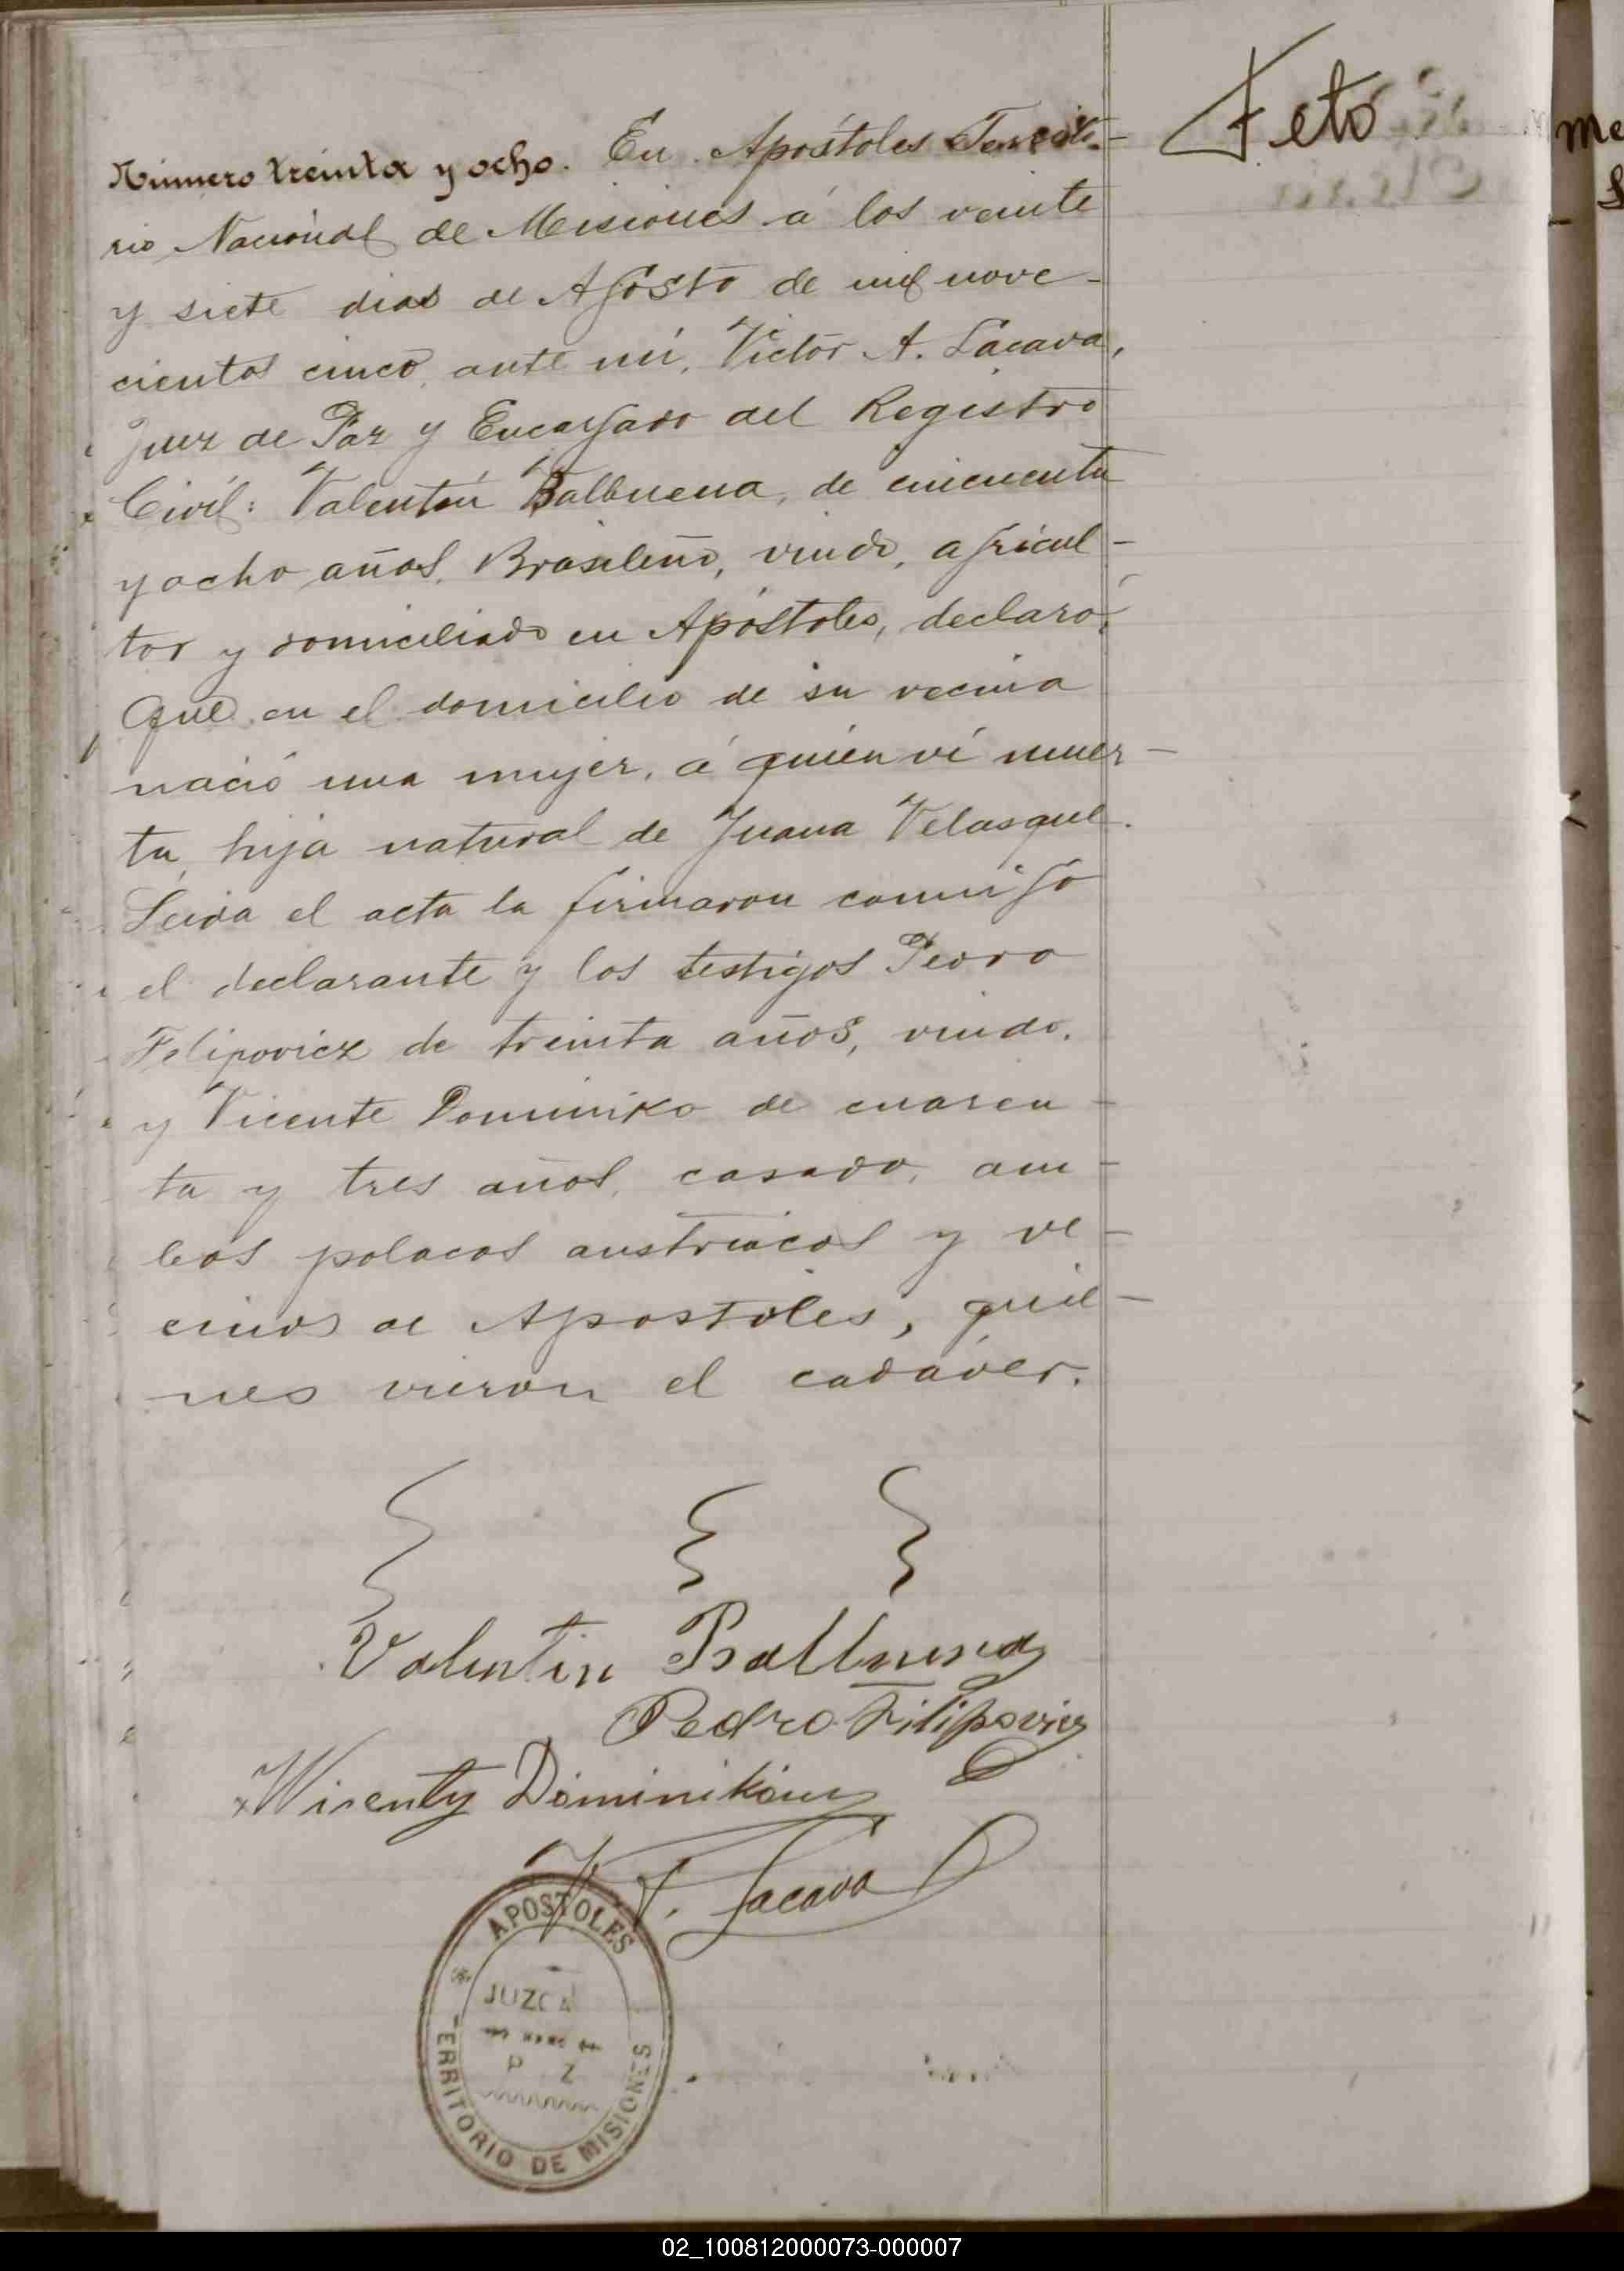 Feto
Número treinta y ocho. En Apóstoles Territo-
rio Nacional de Misiones á los veinte
y siete dias de Agosto de mil nove-
cientos cinco, ante mí, Victor A. Lacava,
Juez de Paz y Encargado del Registro
Civil: Valentín Balbuena, de cincuenta
y ocho años, Brasileño, viudo, agricul-
tor y domiciliado en Apóstoles, declaró:
Que en el domicilio de su vecina
nació una mujer, á quien ví muer-
ta, hija natural de Juana Velasque.
Leida el acta la firmaron conmigo
el declarante y los testigos Pedro
Felipovicz de treinta años, viudo,
y Vicente Dominiko de cuaren-
ta y tres años, casado, am-
bos polacos austriacos y ve-
cinos de Apostoles, quie-
nes vieron el cadáver.
Valentin Balbuena
Pedro Filipovicz
Wicenty Dominików
V. A. Lacava
APOSTOLES
JUZGA
P Z
TERRITORIO DE MISIONES
02_100812000073-000007